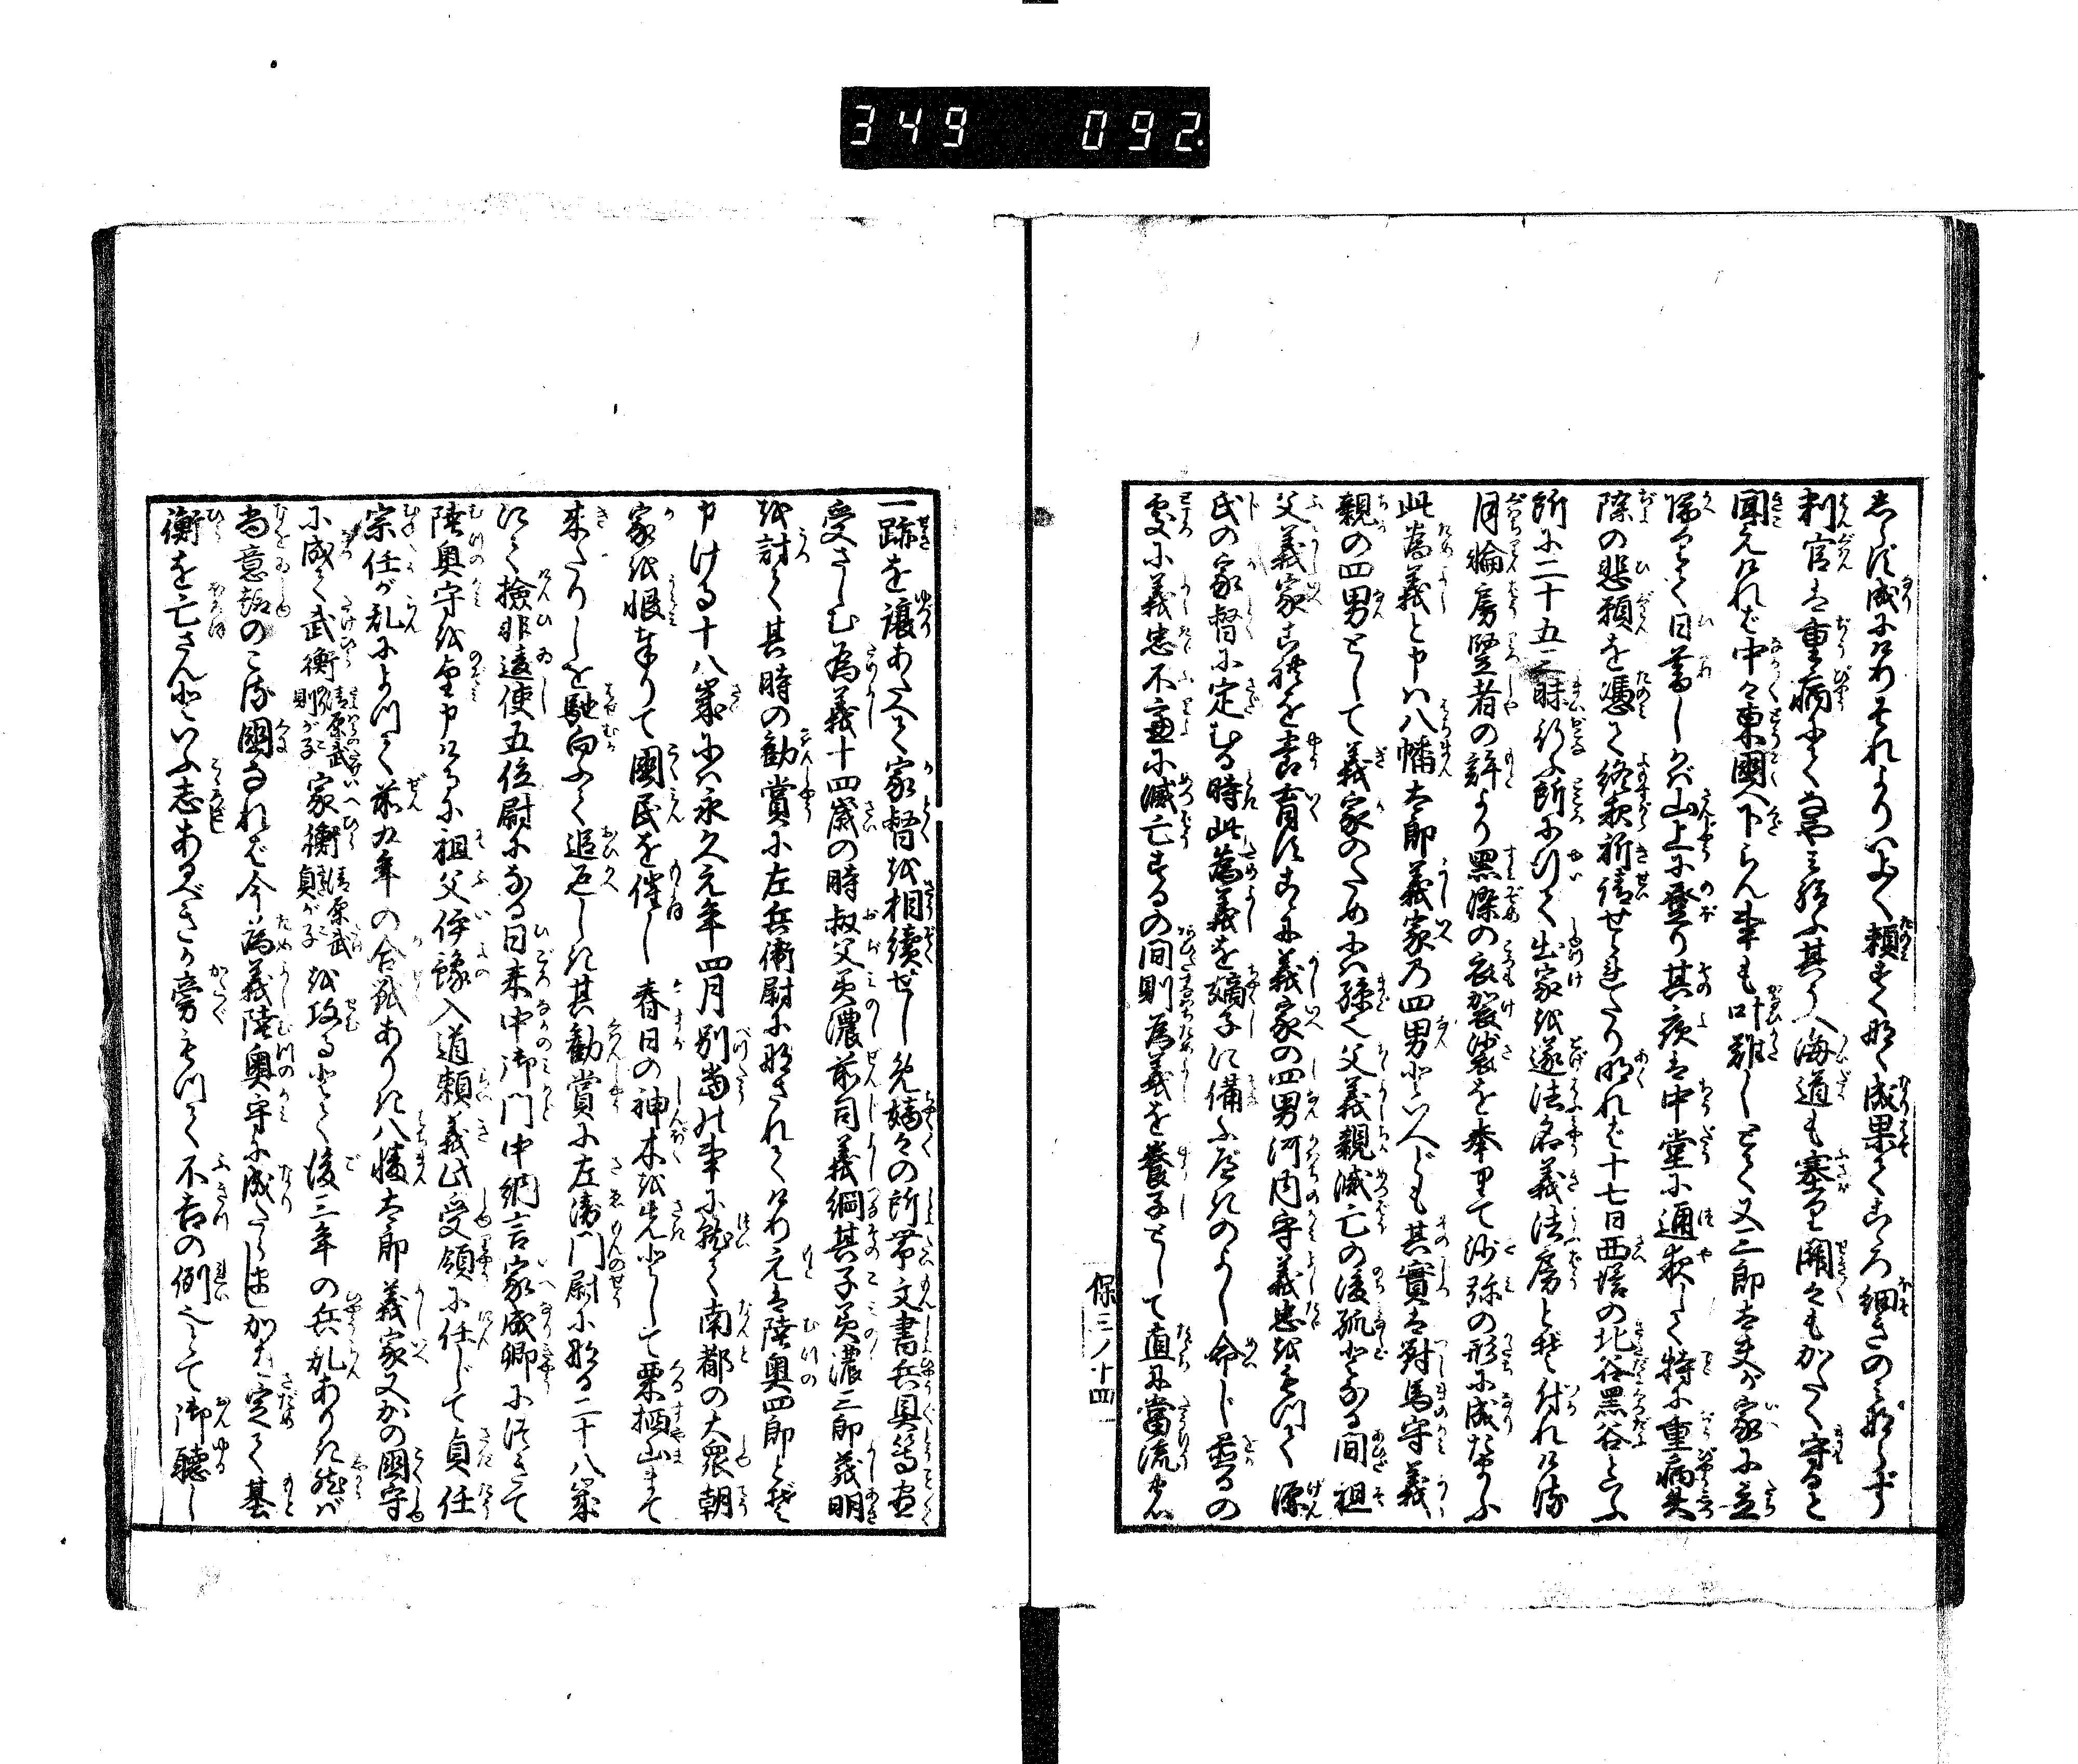 349 092
ちらに成にけりそれよりいよ〳〵頼すくなく成果てこゝろ細きのみならず
判官は重病にてなやみ給ふ其うへ海道も塞り関々もかたく守ると
聞えければ中々東国へ下らん事も叶難しとて又三郎大夫が家に立
帰るとて日暮しかば山上に登り其夜は中堂に通夜して特に重病失
除の悲願を憑て終夜祈請せられたり明れば十七日西塔の北谷黒谷といふ
所に二十五三昧行ふ所に行て出家を遂法名義法房とぞ付れける
月輪房竪者の許より黒染の衣袈裟を奉りて沙弥の形に成たまふ
此為義と申は八幡太郎義家の四男といへども其実は対馬守義
親の四男として義家のためには孫也父義親滅亡の後孤となる間祖
父義家これを養育すこゝに義家の四男河内守義忠をもつて源
氏の家督に定むる時此為義を嫡子に備ふべきのよし命じ置るの
処に義忠不慮に滅亡するの間則為義を養子として直に当流
保三ノ十四
一跡を譲あたへて家督を相続せしめ嫡々の所帯文書兵具等悉
受さしむ為義十四歳の時叔父美濃前司義綱其子美濃三郎義明
を討て其時の勧賞に左兵衛尉になされてけり元は陸奥四郎とぞ
申ける十八歳には永久元年四月別当の事に就て南都の大衆朝
家を恨奉りて国民を催し春日の神木を先として栗栖山まで
来たりしを馳向ふて追返しき其勧賞に左衛門尉になる二十八歳
にて検非違使五位尉になる日来中御門中納言家成卿に付きて
陸奥守を望申けるに祖父伊豫入道頼義此受領に任じて貞任
宗任が乱によつて前九年の合戦ありき八幡太郎義家又かの国守
に成て武衡清原武則が子家衡清原武貞が子を攻るとて後三年の兵乱ありき然ば
尚意趣のこる国なれば今為義陸奥守に成たらましかば定て基
衡を亡さんといふ志あるべきか旁もつて不吉の例也とて御聴し